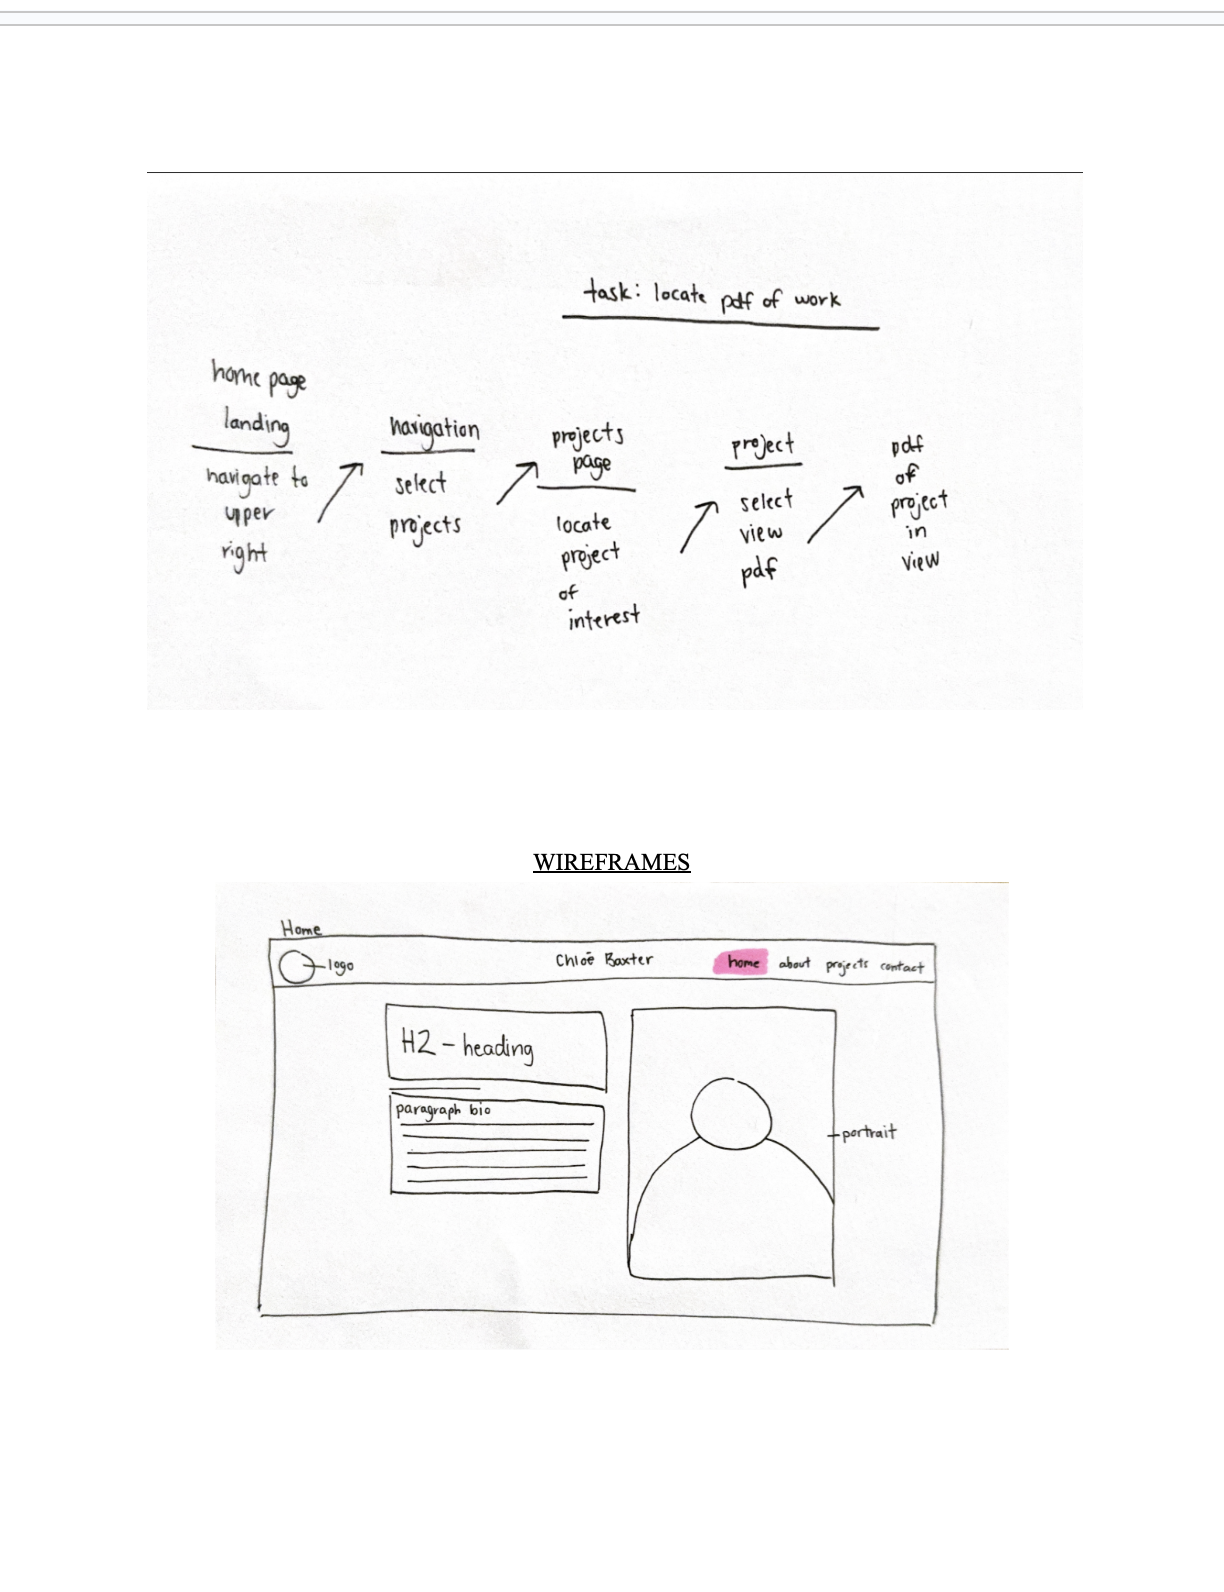 task: locate pdf of work
home page
landing
navigate to
upper
right
navigation
select
projects
projects
page
locate
project
of
interest
project
select
view
pdf
pdf
of
project
in
view
WIREFRAMES
Home
logo
Chloē Baxter
home about projects contact
H2 - heading
paragraph bio
portrait